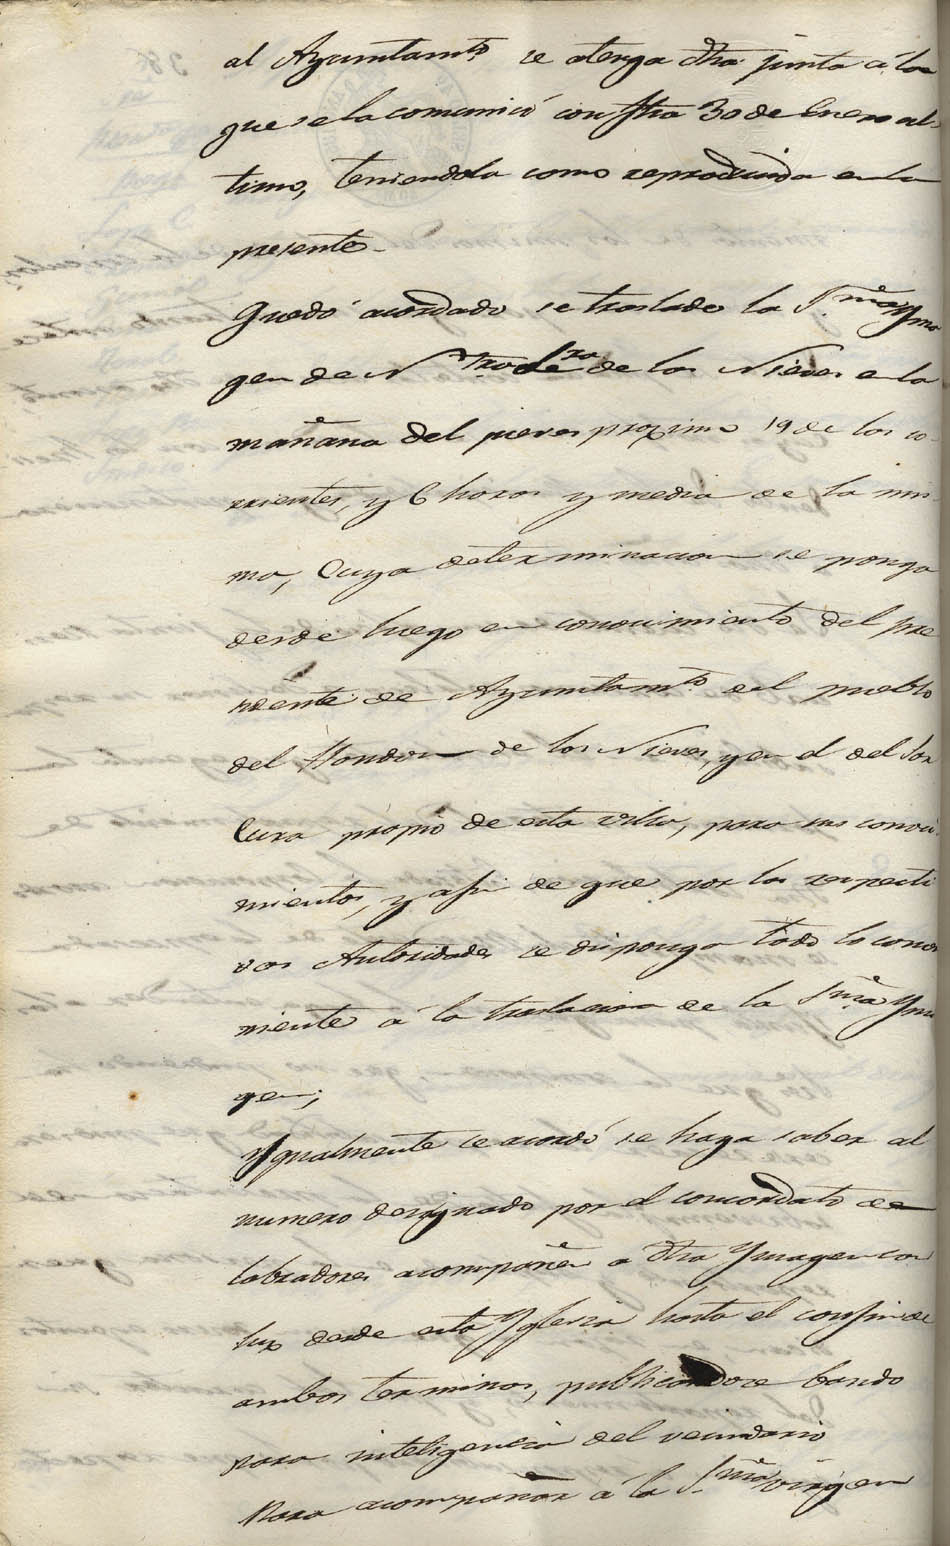 al Ayuntamto. se atenga dha junta á lo
que se la comunicó con fha 30 de Enero ul-
timo, teniendola como reproducida en la
presente.
Quedó acordado se traslade la S.ma Yma
gen de Ntra Sra de las Nieves en la
mañana del jueves proximo 19 de los co-
rrientes, y 6 horas y media de la mis
ma, Cuya determinacion se ponga
desde luego en conocimiento del pre
sidente de Ayuntamto. del pueblo
del Hondon de las Nieves, y en el del Sor
Cura propio de esta villa, para sus conoci-
mientos, y afin de que por las respecti
vas Autoridades se disponga todo lo conve
niente á la traslacion de la S.ma Yma
gen;
Ygualmente se acordó se haga saber al
numero designado por el concordato de
labradores acompañen a dha Ymagen con
luz desde esta Yglesia hasta el confin de
ambos terminos, publicandose bando
para inteligencia del vecindario
Para acompañar á la S.ma Virgen